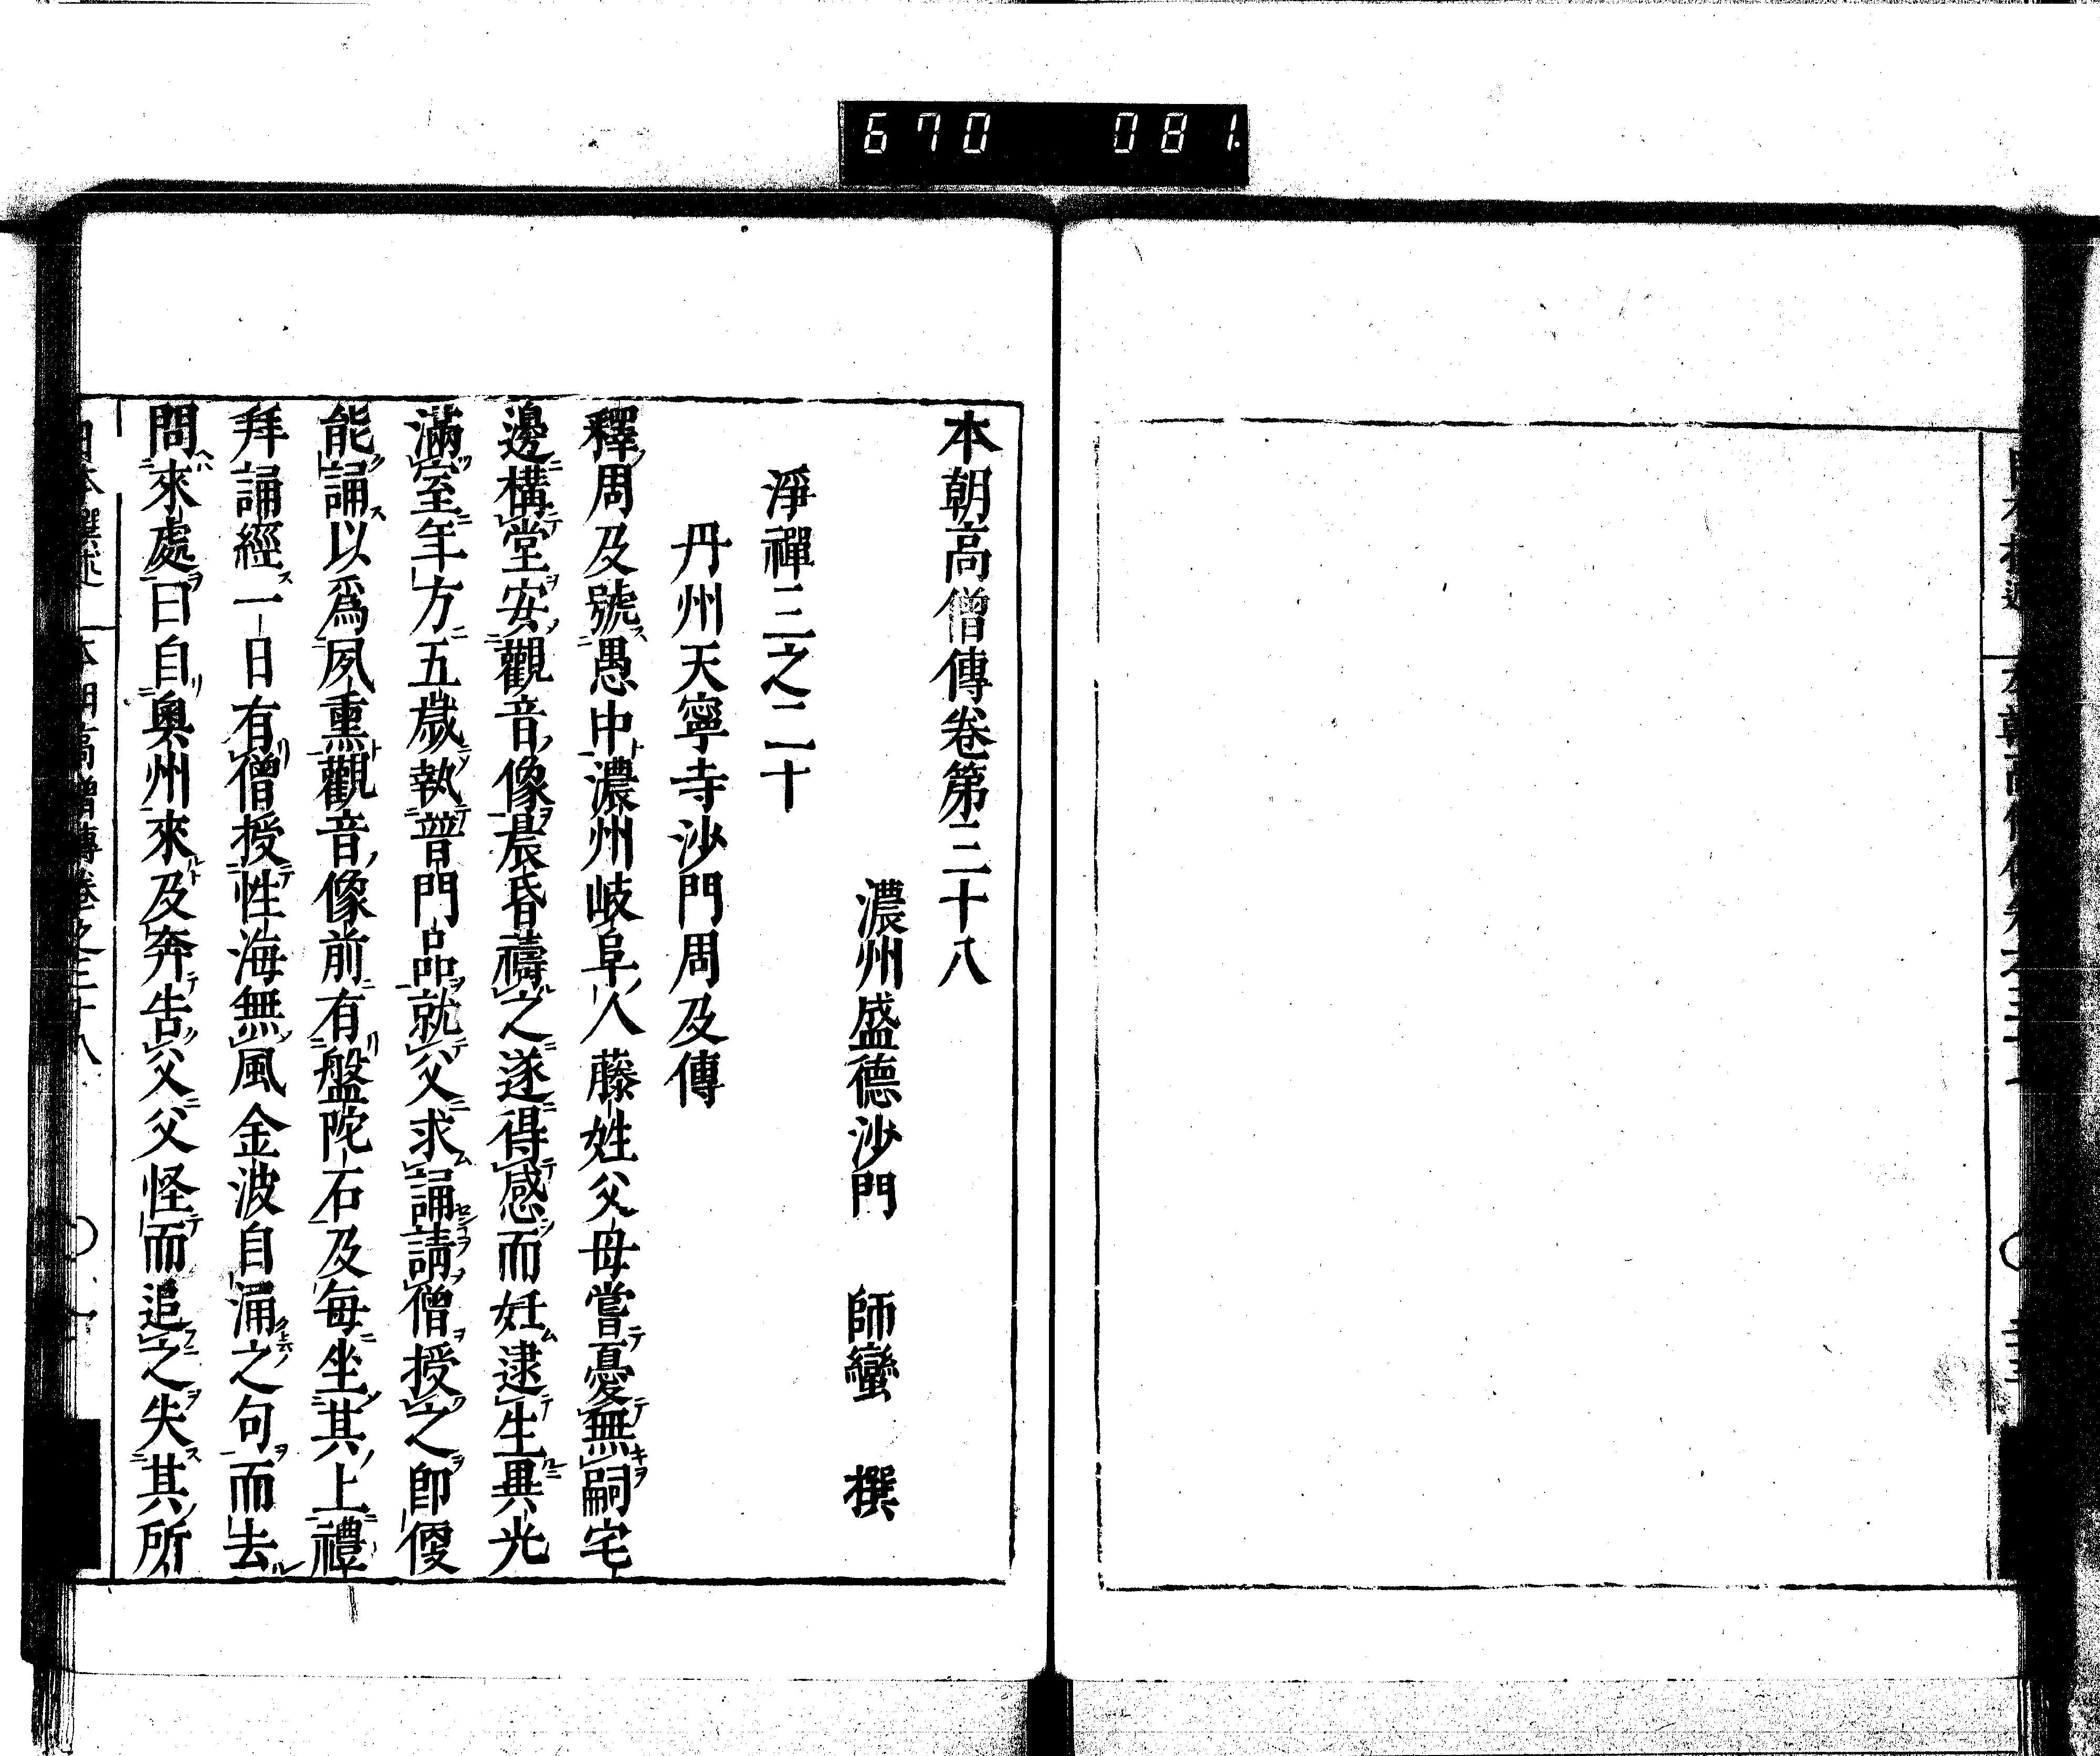 670 081
本朝高僧傳卷第三十八
濃州盛德沙門 師蠻 撰
淨禪三之二十
丹州天寧寺沙門周及傳
釋周及號愚中濃州岐阜人藤姓父母嘗憂無嗣宅
邊構堂安觀音像晨昏禱之遂得感而妊逮生異光
滿室年方五歲執普門品就父求誦請僧授之即傻
能誦以爲夙熏觀音像前有盤陀石及每坐其上禮
拜誦經一日有僧授性海無風金波自涌之句而去
問來處曰自奧州來及奔告父父怪而追之失其所
本朝高僧傳卷之三十八 〇 一